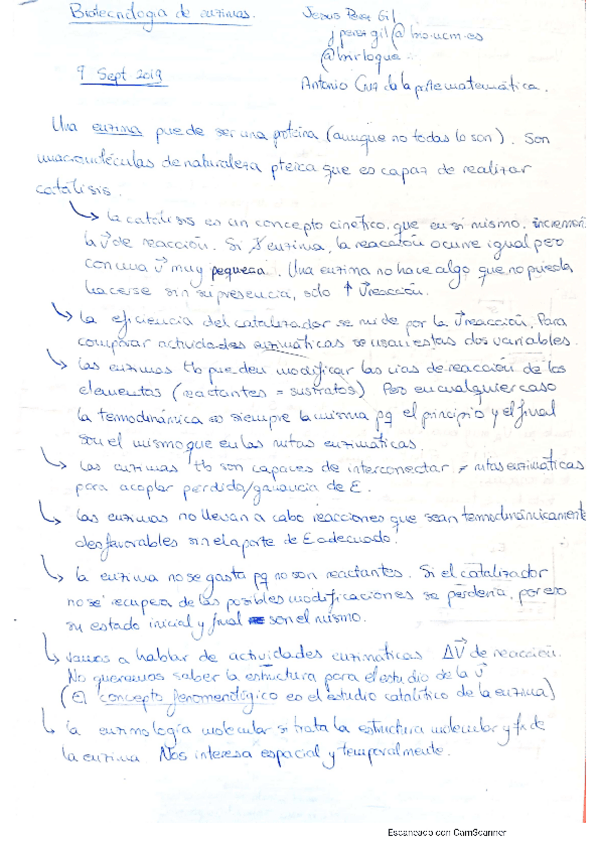 Biotecnología de enzimas.
Jesús Perez Gil
jperezgil@bio.ucm.es
9 Sept 2019
Antonio Cruz da la parte matemática.
Una enzima puede ser una proteína (aunque no todas lo son). Son
macromoléculas de naturaleza pteica que es capaz de realizar
catálisis.
↳ la catálisis es un concepto cinético, que en si mismo, incremen
la v de reacción. Si ∄ enzima, la reacción ocurre igual pero
con una v muy pequeña. Una enzima no hace algo que no pueda
hacerse sin su presencia, solo ↑ v reacción.
↳ la eficiencia del catalizador se mide por la v reacción. Para
comparar actividades enzimáticas se usan estas dos variables.
↳ las enzimas tb pueden modificar las vias de reacción de los
elementos (reactantes = sustratos) Pero en cualquier caso
la termodinámica es siempre la misma pq el principio y el final
son el mismo que en las rutas enzimáticas.
↳ las enzimas tb son capaces de interconectar ≠ rutas enzimáticas
para acoplar perdida/ganancia de E.
↳ las enzimas no llevan a cabo reacciones que sean termodinámicamente
desfavorables sin el aporte de E adecuado.
↳ la enzima no se gasta pq no son reactantes. Si el catalizador
no se recupera de las posibles modificaciones se perdería, por eso
su estado inicial y final son el mismo.
↳ vamos a hablar de actividades enzimáticas ΔV de reacción.
No queremos saber la estructura para el estudio de la v
(El concepto fenomenológico es el estudio catalítico de la enzima)
↳ la enzimología molecular si trata la estructura molecular y fx de
la enzima Nos interesa espacial y temporalmente.
Escaneado con CamScanner